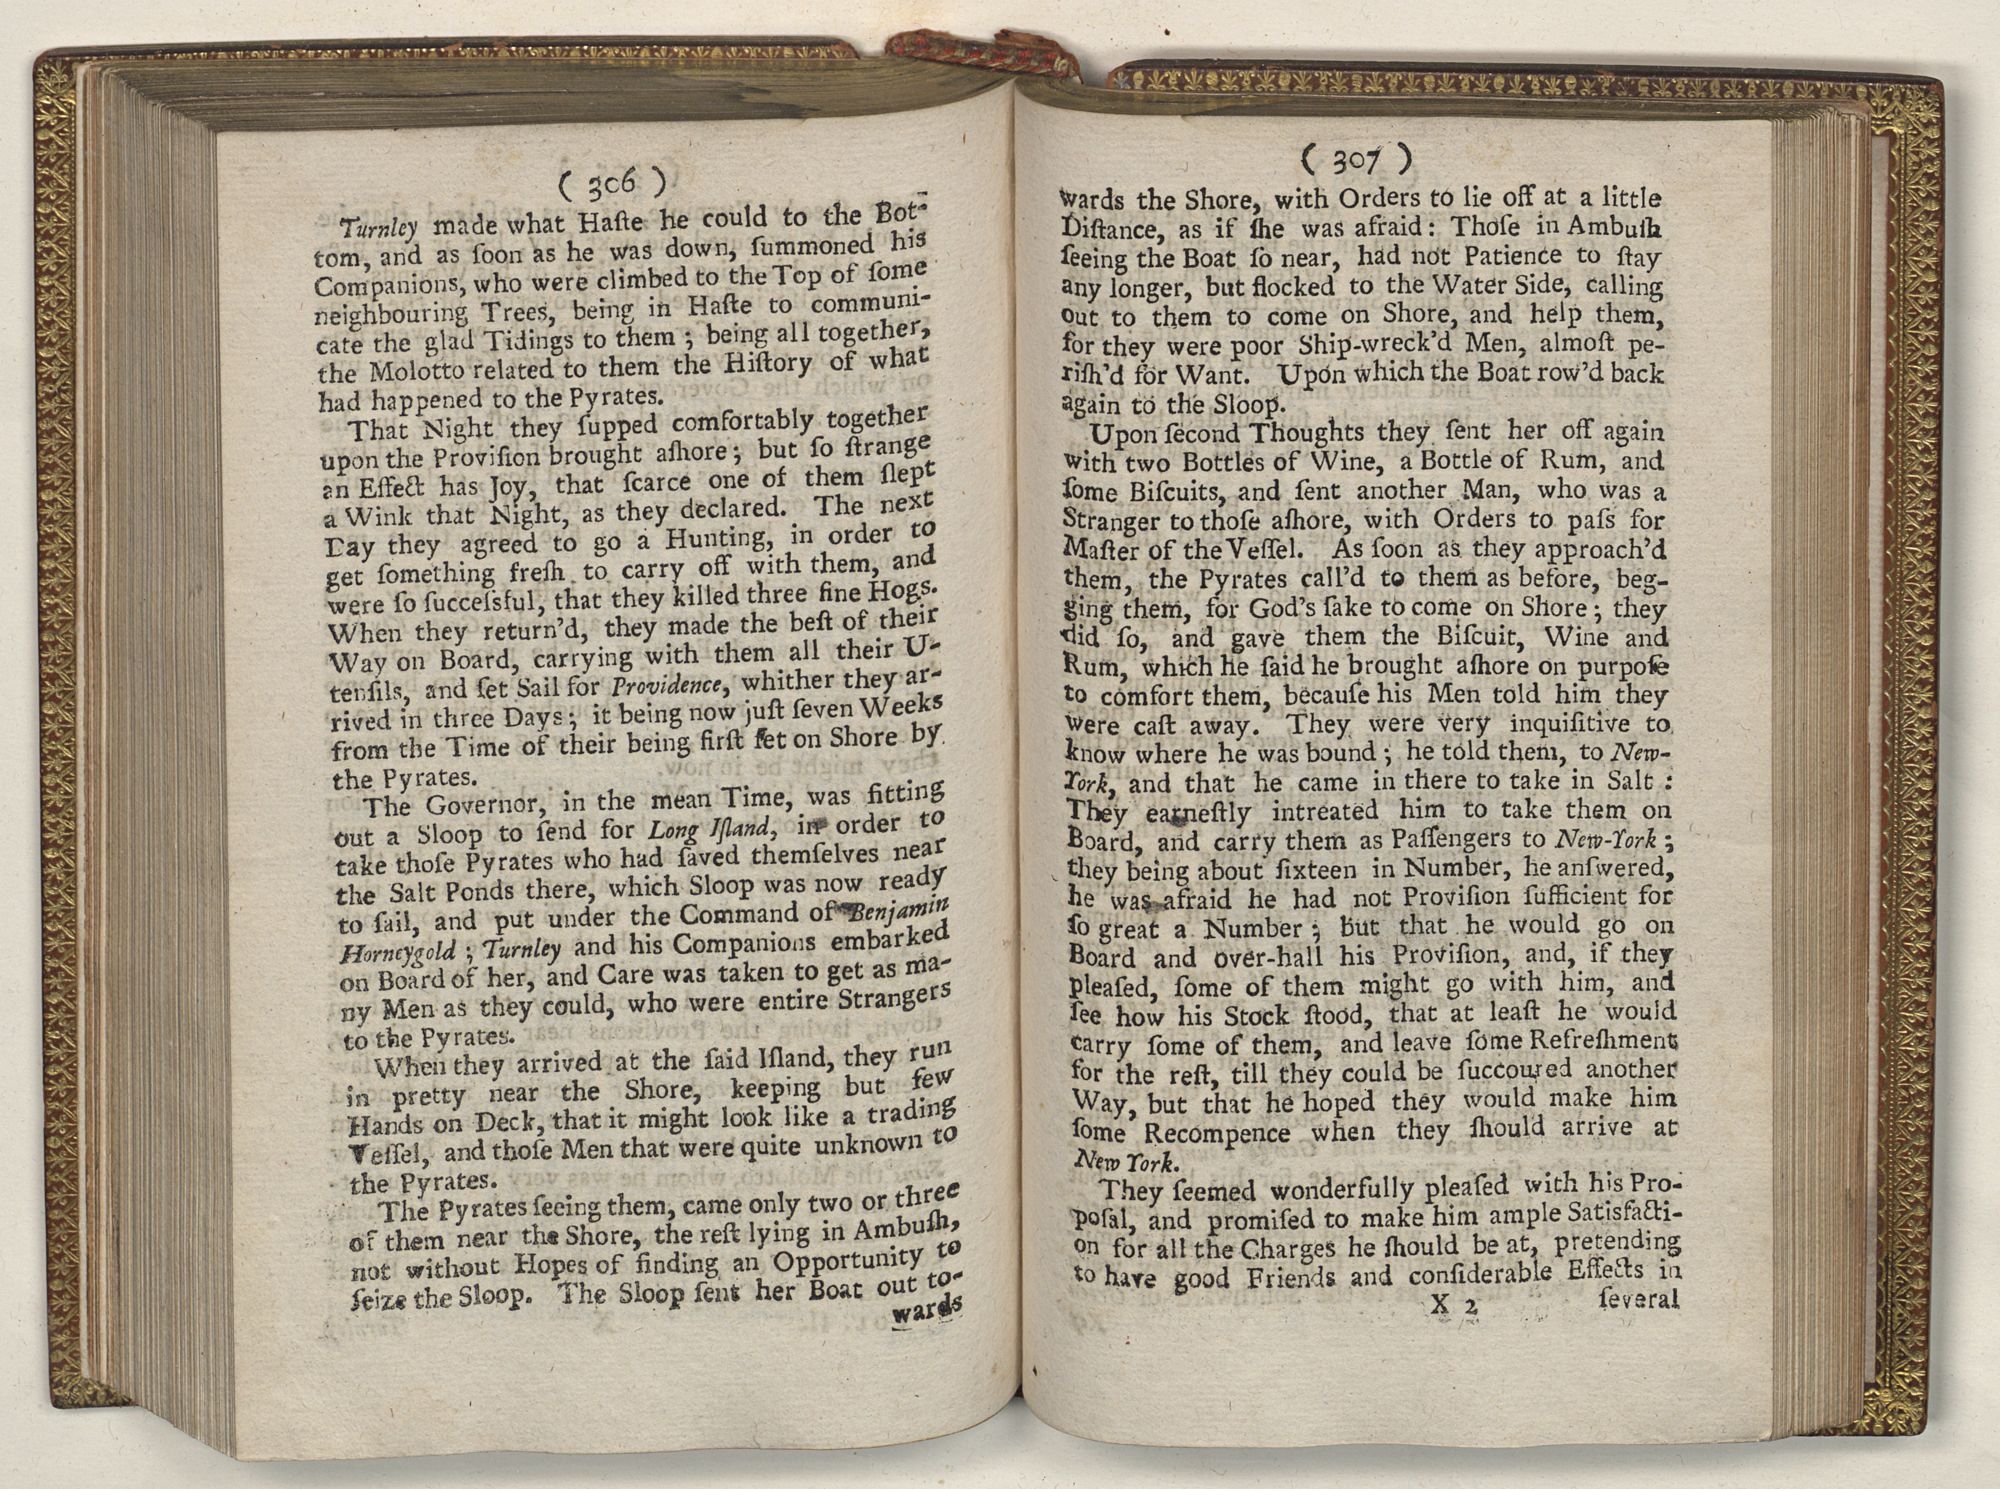 ( 306 )
Turnley made what Haſte he could to the Bot-
tom, and as ſoon as he was down, ſummoned his
Companions, who were climbed to the Top of ſome
neighbouring Trees, being in Haſte to communi-
cate the glad Tidings to them ; being all together,
the Molotto related to them the Hiſtory of what
had happened to the Pyrates.
That Night they ſupped comfortably together
upon the Proviſion brought aſhore ; but ſo ſtrange
an Effect has Joy, that ſcarce one of them ſlept
a Wink that Night, as they declared. The next
Day they agreed to go a Hunting, in order to
get ſomething freſh to carry off with them, and
were ſo ſucceſsful, that they killed three fine Hogs.
When they return'd, they made the beſt of their
Way on Board, carrying with them all their U-
tenſils, and ſet Sail for Providence, whither they ar-
rived in three Days ; it being now juſt ſeven Weeks
from the Time of their being firſt ſet on Shore by
the Pyrates.
The Governor, in the mean Time, was fitting
out a Sloop to ſend for Long Iſland, in order to
take thoſe Pyrates who had ſaved themſelves near
the Salt Ponds there, which Sloop was now ready
to ſail, and put under the Command of Benjamin
Horneygold ; Turnley and his Companions embarked
on Board of her, and Care was taken to get as ma-
ny Men as they could, who were entire Strangers
to the Pyrates.
When they arrived at the ſaid Iſland, they run
in pretty near the Shore, keeping but few
Hands on Deck, that it might look like a trading
Veſſel, and thoſe Men that were quite unknown to
the Pyrates.
The Pyrates ſeeing them, came only two or three
of them near the Shore, the reſt lying in Ambuſh,
not without Hopes of finding an Opportunity to
ſeize the Sloop. The Sloop ſent her Boat out to-
wards
( 307 )
wards the Shore, with Orders to lie off at a little
Diſtance, as if ſhe was afraid : Thoſe in Ambuſh
ſeeing the Boat ſo near, had not Patience to ſtay
any longer, but flocked to the Water Side, calling
out to them to come on Shore, and help them,
for they were poor Ship-wreck'd Men, almoſt pe-
riſh'd for Want. Upon which the Boat row'd back
again to the Sloop.
Upon ſecond Thoughts they ſent her off again
with two Bottles of Wine, a Bottle of Rum, and
ſome Biſcuits, and ſent another Man, who was a
Stranger to thoſe aſhore, with Orders to paſs for
Maſter of the Veſſel. As ſoon as they approach'd
them, the Pyrates call'd to them as before, beg-
ging them, for God's ſake to come on Shore ; they
did ſo, and gave them the Biſcuit, Wine and
Rum, which he ſaid he brought aſhore on purpoſe
to comfort them, becauſe his Men told him they
were caſt away. They were very inquiſitive to
know where he was bound ; he told them, to New-
York, and that he came in there to take in Salt :
They earneſtly intreated him to take them on
Board, and carry them as Paſſengers to New-York ;
they being about ſixteen in Number, he anſwered,
he was afraid he had not Proviſion ſufficient for
ſo great a Number ; but that he would go on
Board and over-hall his Proviſion, and, if they
pleaſed, ſome of them might go with him, and
ſee how his Stock ſtood, that at leaſt he would
carry ſome of them, and leave ſome Refreſhment
for the reſt, till they could be ſuccoured another
Way, but that he hoped they would make him
ſome Recompence when they ſhould arrive at
New York.
They ſeemed wonderfully pleaſed with his Pro-
poſal, and promiſed to make him ample Satisfacti-
on for all the Charges he ſhould be at, pretending
to have good Friends and conſiderable Effects in
X 2 ſeveral